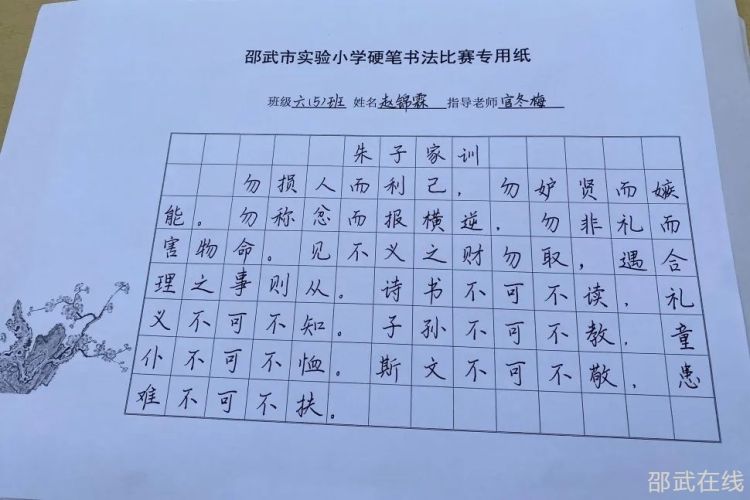 邵武市实验小学硬笔书法比赛专用纸
班级六(5)班 姓名赵锦霖 指导老师官冬梅
朱子家训
勿损人而利己,勿妒贤而嫉
能。勿称忿而报横逆,勿非礼而
害物命。见不义之财勿取,遇合
理之事则从。诗书不可不读,礼
义不可不知。子孙不可不教,童
仆不可不恤。斯文不可不敬,患
难不可不扶。
邵武在线